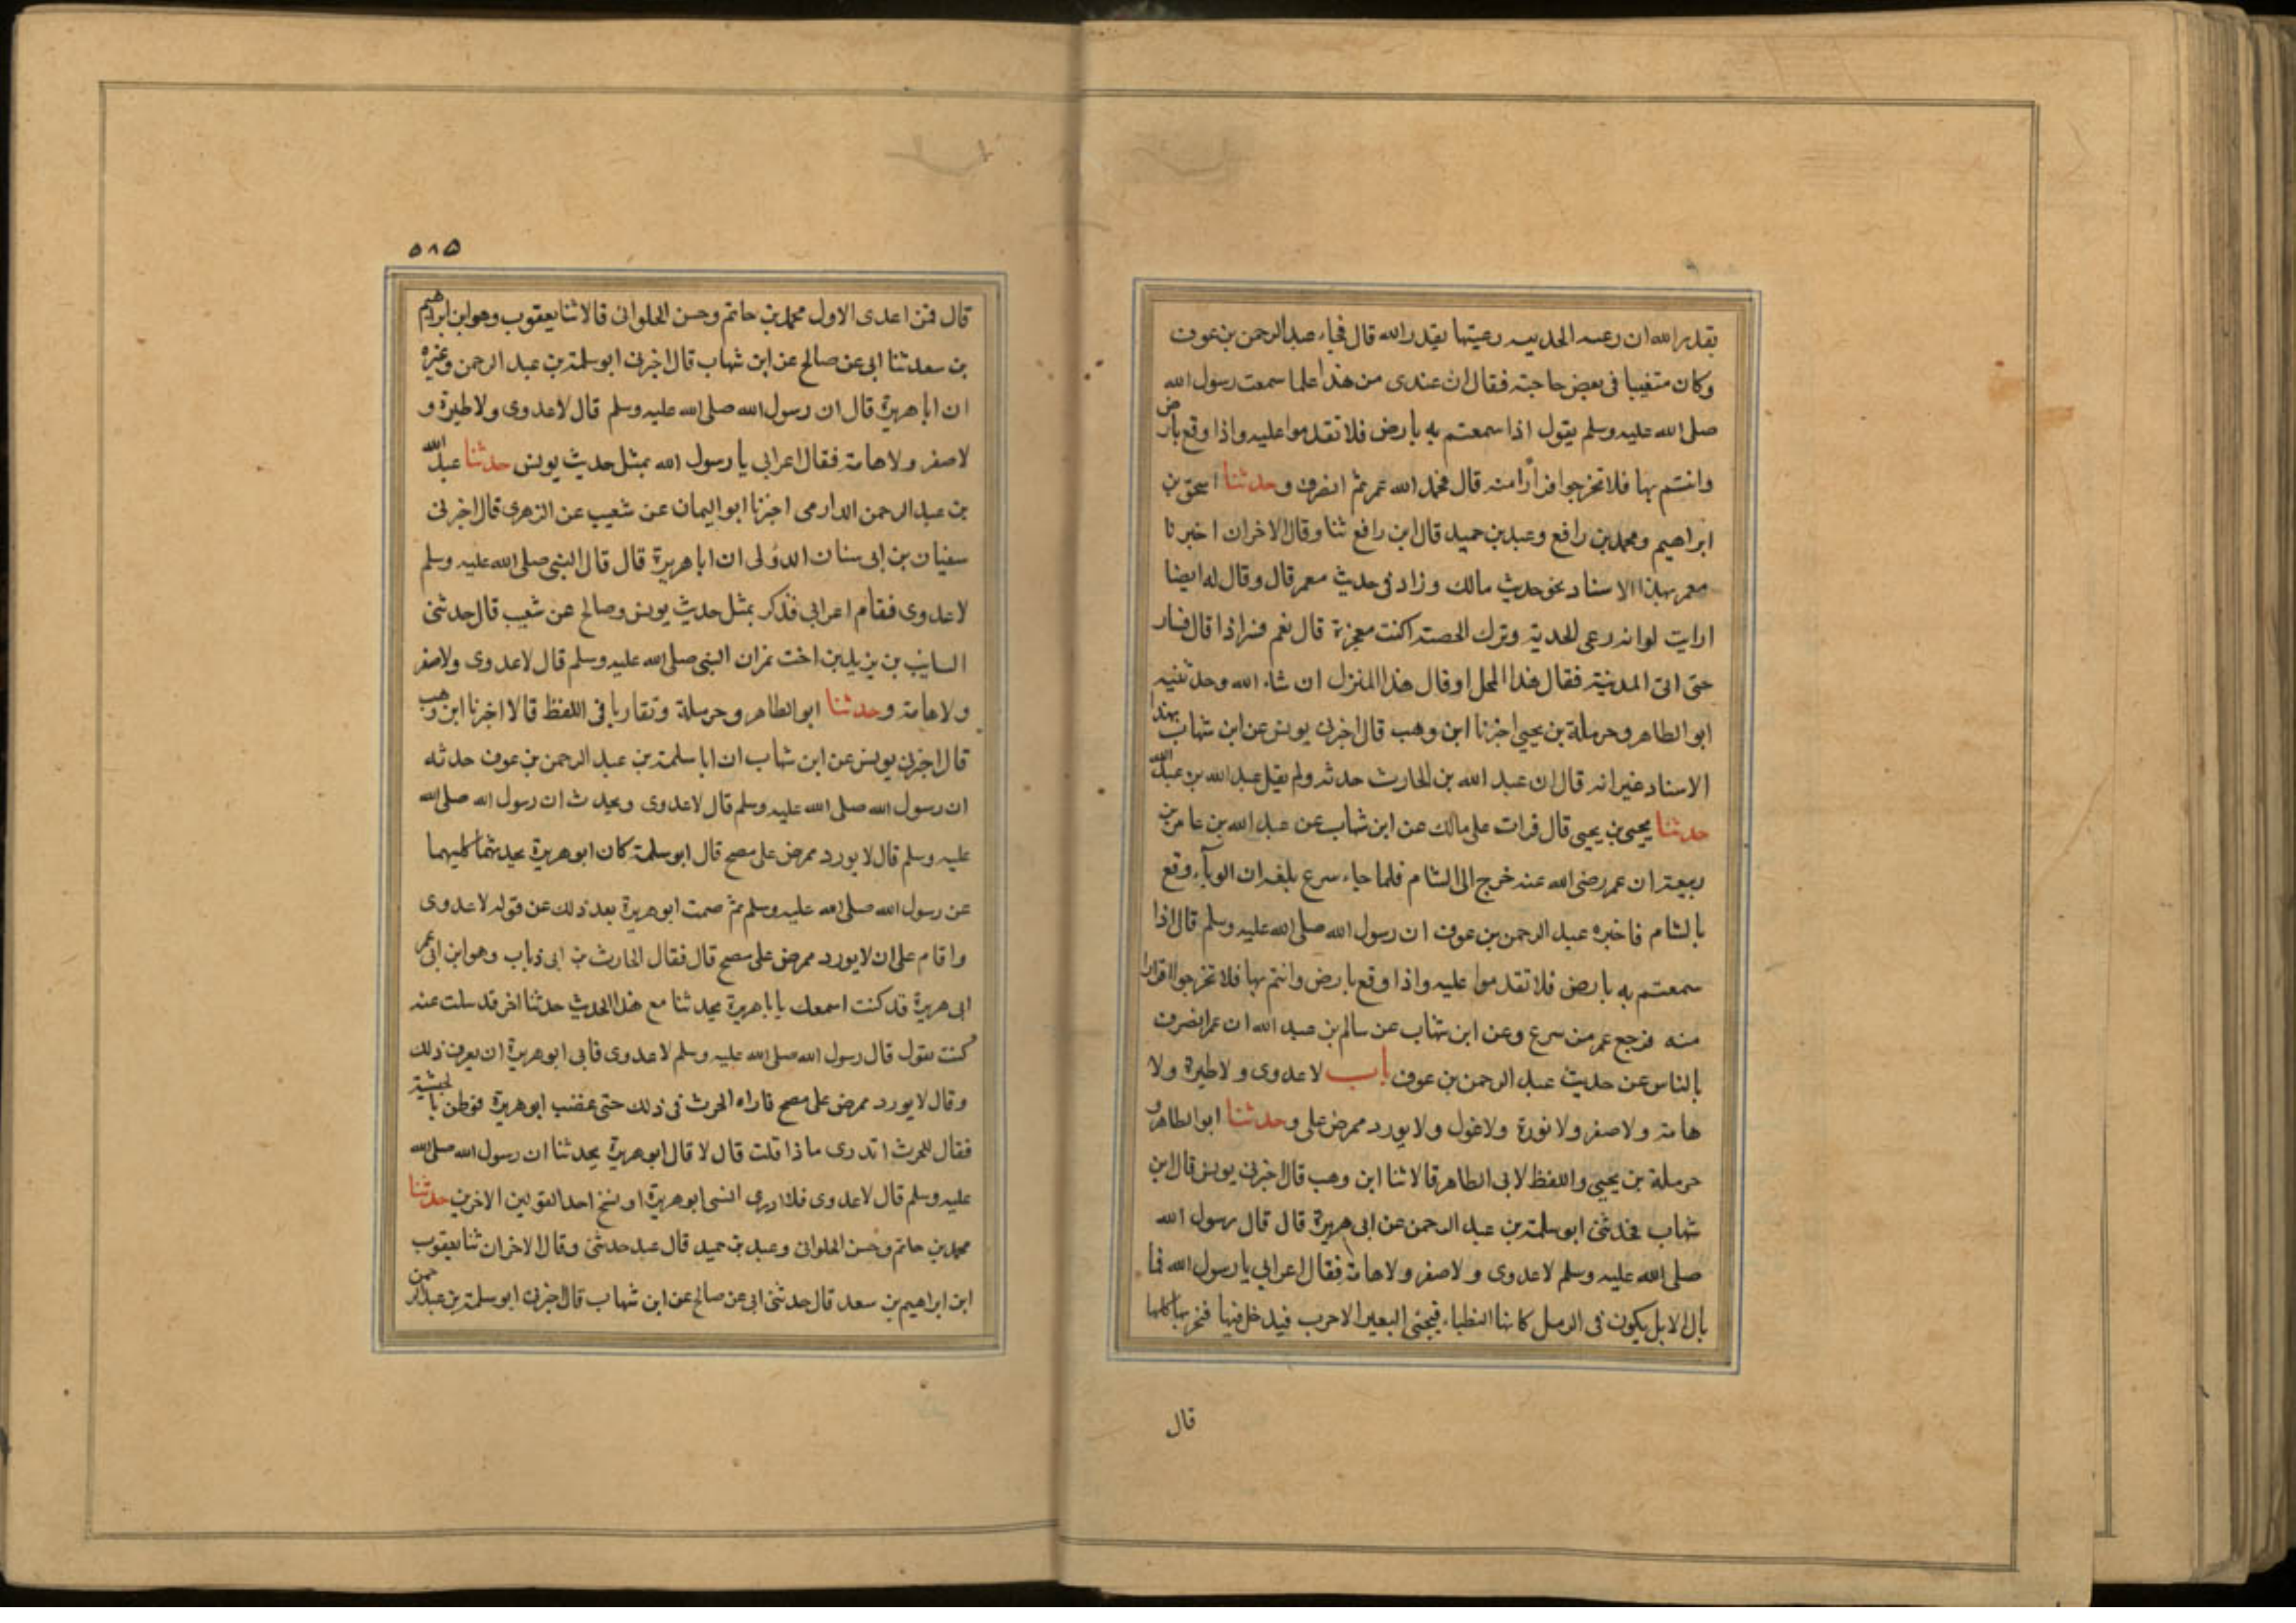 بقدر الله ان رعيت الجدبه رعيتها بقدر الله قال فجاء عبد الرحمن بن عوف
وكان متغيبا فى بعض حاجته فقال ان عندى من هذا علما سمعت رسول الله
صلى الله عليه وسلم يقول اذا سمعتم به بارض فلا تقدموا عليه واذا وقع بارض
وانتم بها فلا تخرجوا فرارًا منه قال فحمد الله عمر ثم انصرف وحدثنا اسحق بن
ابراهيم ومحمد بن رافع وعبد بن حميد قال ابن رافع ثنا وقال الاخران اخبرنا
معمر بهذا الاسناد نحو حديث مالك وزاد فى حديث معمر قال وقال له ايضا
ارايت لو انه رعى الجدبة وترك الخصبة اكنت معجزة قال نعم فسر اذا قال فسار
حتى اتى المدينة فقال هذا المحل او قال هذا المنزل ان شاء الله وحدثنيه
ابو الطاهر وحرملة بن يحيى اخبرنا ابن وهب قال اخبرنى يونس عن ابن شهاب بهذا
الاسناد غير انه قال ان عبد الله بن الحارث حدثه ولم يقل عبد الله بن عبد الله
حدثنا يحيى بن يحيى قال قرات على مالك عن ابن شهاب عن عبد الله بن عامر بن
ربيعة ان عمر رضى الله عنه خرج الى الشام فلما جاء سرع بلغه ان الوبآء وقع
بالشام فاخبره عبد الرحمن بن عوف ان رسول الله صلى الله عليه وسلم قال اذا
سمعتم به بارض فلا تقدموا عليه واذا وقع بارض وانتم بها فلا تخرجوا فرارا
منه فرجع عمر من سرع وعن ابن شهاب عن سالم بن عبد الله ان عمر انصرف
بالناس عن حديث عبد الرحمن بن عوف باب لا عدوى ولا طيرة ولا
هامة ولا صفر ولا نورة ولا غول ولا يورد ممرض على وحدثنا ابو الطاهر و
حرملة بن يحيى واللفظ لابى الطاهر قالا ثنا ابن وهب قال اخبرنى يونس قال ابن
شهاب فحدثنى ابو سلمة بن عبد الرحمن عن ابى هريرة قال قال رسول الله
صلى الله عليه وسلم لا عدوى ولا صفر ولا هامة فقال اعرابي يا رسول الله فما
بال الابل يكون فى الرمل كانها الظباء فيجئ البعير الاجرب فيدخل فيها فيجربها كلها
قال
٥٨٥
قال فمن اعدى الاول محمد بن حاتم وحسن الحلوانى قالا ثنا يعقوب وهو ابن ابراهيم
بن سعد ثنا ابى عن صالح عن ابن شهاب قال اخبرنى ابو سلمة بن عبد الرحمن وغيره
ان ابا هريرة قال ان رسول الله صلى الله عليه وسلم قال لا عدوى ولا طيرة و
لا صفر ولا هامة فقال اعرابي يا رسول الله بمثل حديث يونس حدثنا عبد الله
بن عبد الرحمن الدارمى اخبرنا ابو اليمان عن شعيب عن الزهرى قال اخبرنى
سفيان بن ابى سنان الدؤلى ان ابا هريرة قال قال النبي صلى الله عليه وسلم
لا عدوى فقام اعرابي فذكر بمثل حديث يونس وصالح عن شعيب قال حدثنى
السايب بن يزيد بن اخت نمر ان النبي صلى الله عليه وسلم قال لا عدوى ولا صفر
ولا هامة وحدثنا ابو الطاهر وحرملة وتقاربا فى اللفظ قالا اخبرنا ابن وهب
قال اخبرنى يونس عن ابن شهاب ان ابا سلمة بن عبد الرحمن بن عوف حدثه
ان رسول الله صلى الله عليه وسلم قال لا عدوى ويحدث ان رسول الله صلى الله
عليه وسلم قال لا يورد ممرض على مصح قال ابو سلمة كان ابو هريرة يحدثهما كليهما
عن رسول الله صلى الله عليه وسلم ثم صمت ابو هريرة بعد ذلك عن قوله لا عدوى
واقام على ان لا يورد ممرض على مصح قال فقال الحارث بن ابى ذباب وهو ابن عم
ابى هريرة قد كنت اسمعك يا با هريرة يحدثنا مع هذا الحديث حدثنا اخر قد سكت عنه
كنت تقول قال رسول الله صلى الله عليه وسلم لا عدوى فابى ابو هريرة ان يعرف ذلك
وقال لا يورد ممرض على مصح فاراه الحرث فى ذلك حتى غضب ابو هريرة فوطن بالحبشية
فقال للحرث اتدرى ما ذا قلت قال لا قال ابو هريرة يحدثنا ان رسول الله صلى الله
عليه وسلم قال لا عدوى فلا ادرى انسى ابو هريرة او نسخ احد القولين الاخرين حدثنا
محمد بن حاتم وحسن الحلوانى وعبد بن حميد قال عبد حدثنى وقال الاخران ثنا يعقوب
ابن ابراهيم بن سعد قال حدثنى ابى عن صالح عن ابن شهاب قال اخبرنى ابو سلمة بن عبد الرحمن